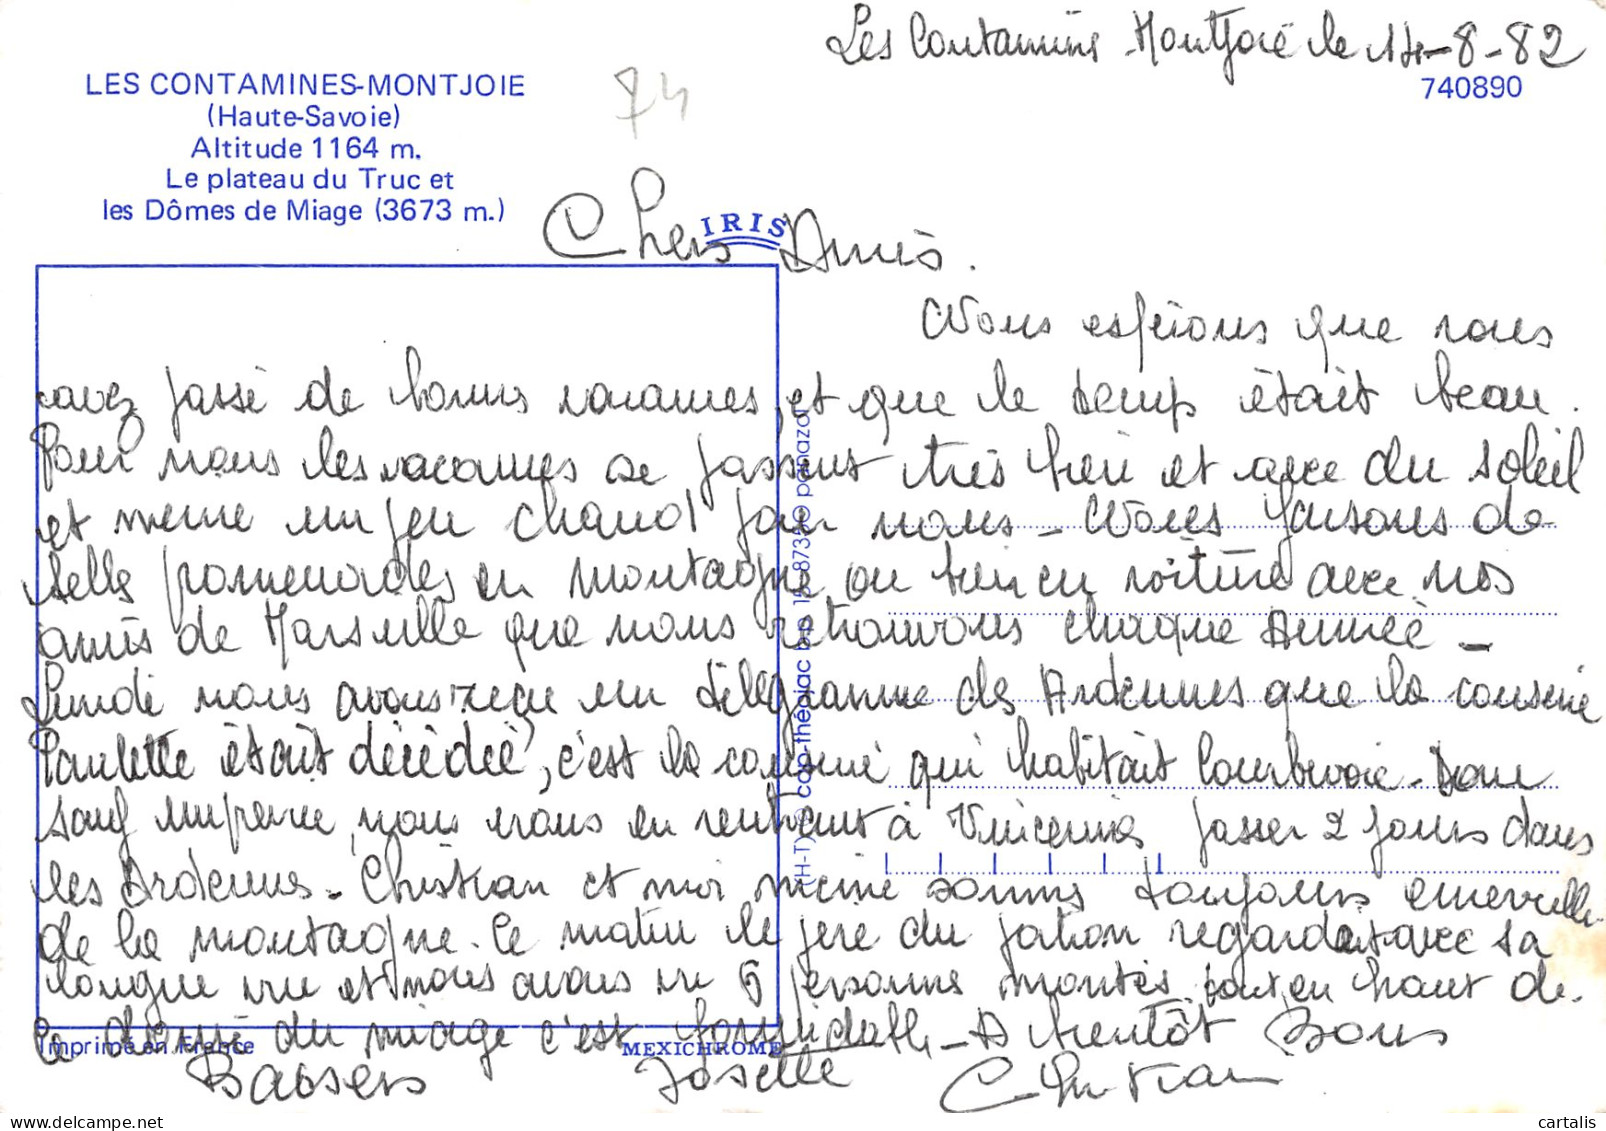 Les Contamines Montjoie le 14-8-82
740890
LES CONTAMINES-MONTJOIE
(Haute-Savoie)
Altitude 1164 m.
Le plateau du Truc et
les Dômes de Miage (3673 m.)
74
IRIS
Chers Amis.
Nous espérons que vous
avez passé de bonnes vacances, et que le temps était beau.
Pour nous les vacances se passent très bien et avec du soleil
et meme un peu chaud pour nous - Nous faisons de
belles promenades en montagne ou bien en voiture avec nos
amis de Marseille que nous retrouvons chaque Année -
Lundi nous avons reçu un télégramme des Ardennes que la cousine
Paulette était décédée, c'est la cousine qui habitait Courbevoie. Donc
sauf imprévu, nous irons en rentrant à Vincennes passer 2 jours dans
les Ardennes - Christian et moi meme sommes toujours emerveillé
de la montagne. Ce matin le père du patron regardait avec sa
longue vue et nous avons vu 6 personnes montés tout en haut de
la du miage c'est formidable - A bientôt Bons
Baisers Josette Christian
Imprimé en France
MEXICHROME
(H-T) © cap-théojac b.p. 15 87350 panazol
cartalis